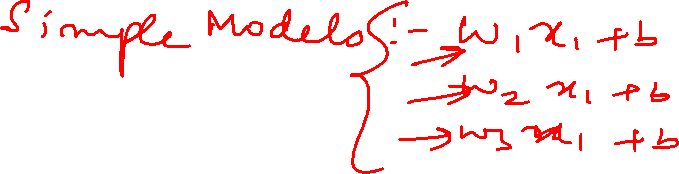 Simple Models :- w₁ x₁ + b
→ w₂ x₁ + b
→ w₃ x₁ + b